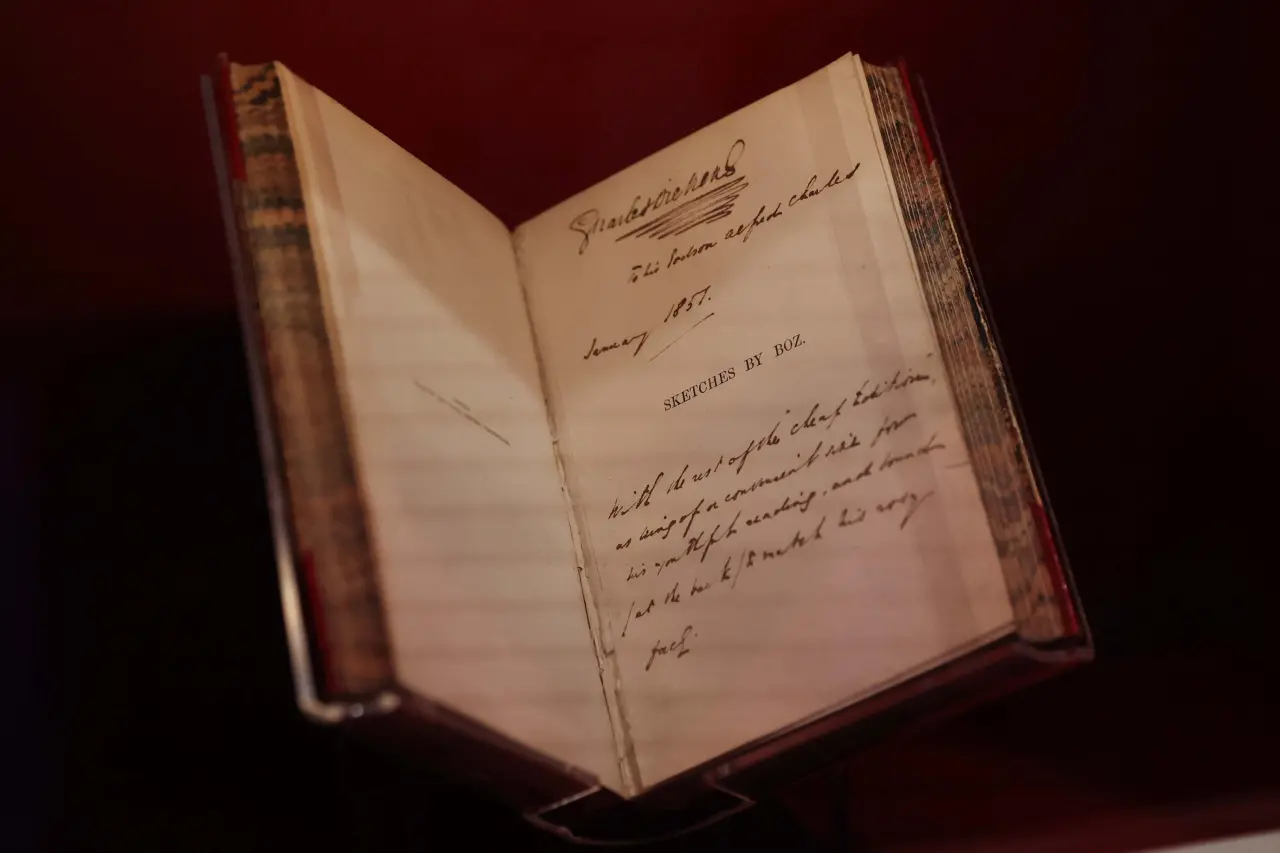 Charles Dickens
To his Godson Alfred Charles
January 1851.
SKETCHES BY BOZ.
With the rest of the cheap Edition,
as being of a convenient size for
his youthful reading, and bound
(at the back) to match his rosy
face.